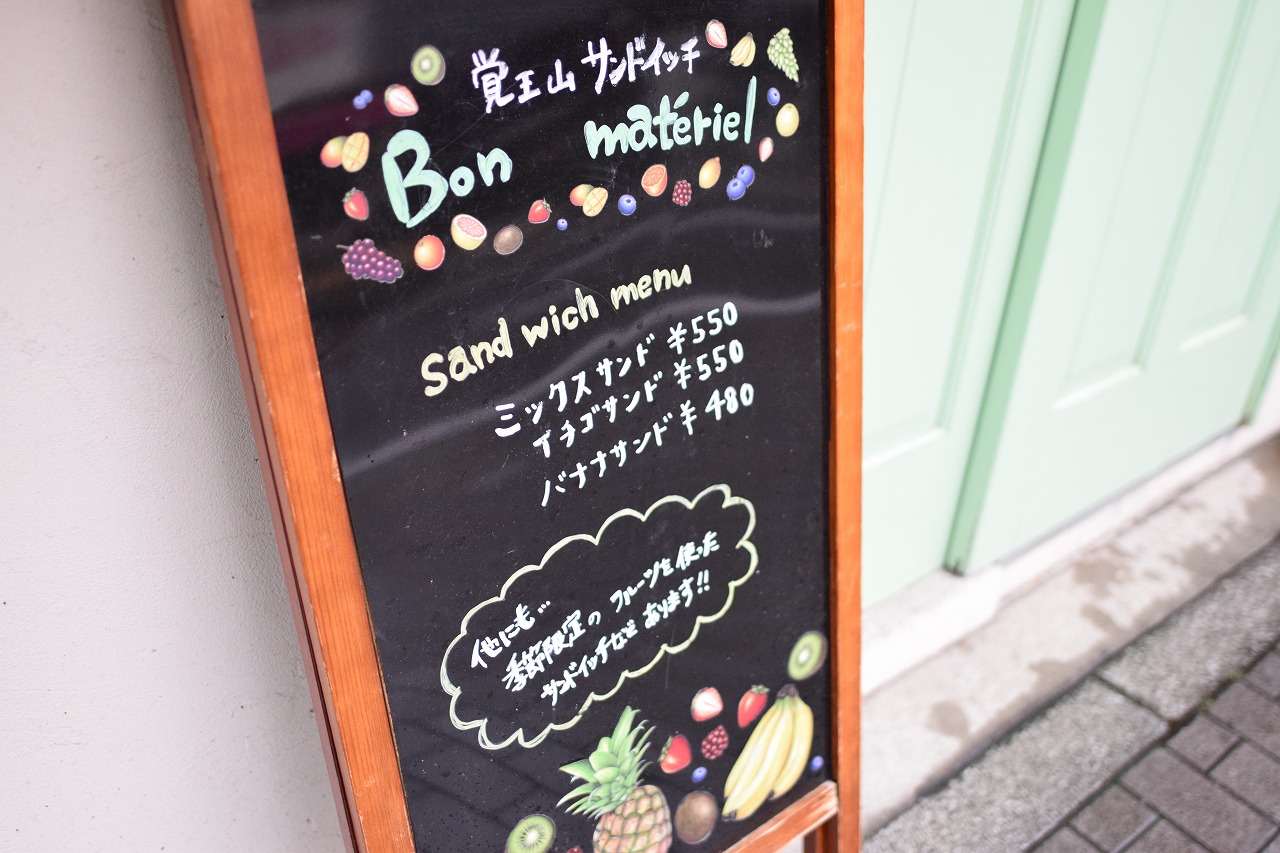 覚王山 サンドイッチ
Bon matériel
sand wich menu
ミックスサンド ¥550
イチゴサンド ¥550
バナナサンド ¥480
他にも…
季節限定の フルーツを使った
サンドイッチなど あります!!